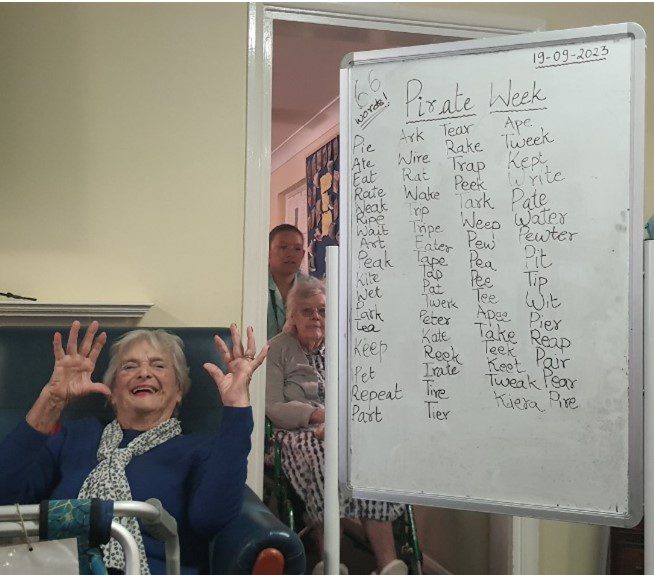 19-09-2023
66 words!
Pirate Week
Pie
Ate
Eat
Rate
Weak
Ripe
Wait
Art
Peak
Kite
Wet
Park
Tea
Keep
Pet
Repeat
Part
Ark
Wire
Rat
Wake
Trip
Tripe
Eater
Tape
Tap
Pat
Twerk
Peter
Kate
Reek
Irate
Tire
Tier
Tear
Rake
Trap
Peek
Tark
Weep
Pew
Pea
Pee
Tee
Apee
Take
Teek
Keet
Tweak
Kiera
Ape
Tweek
Kept
Write
Pate
Water
Pewter
Pit
Tip
Wit
Pier
Reap
Pair
Pear
Pire